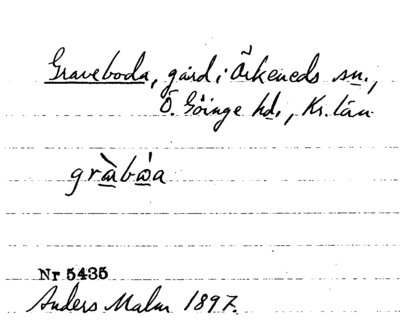 Graveboda, gård i Örkeneds sn.,
Ö. Göinge hd., Kr. län
gràbòa
Nr 5435
Anders Malm 1897.